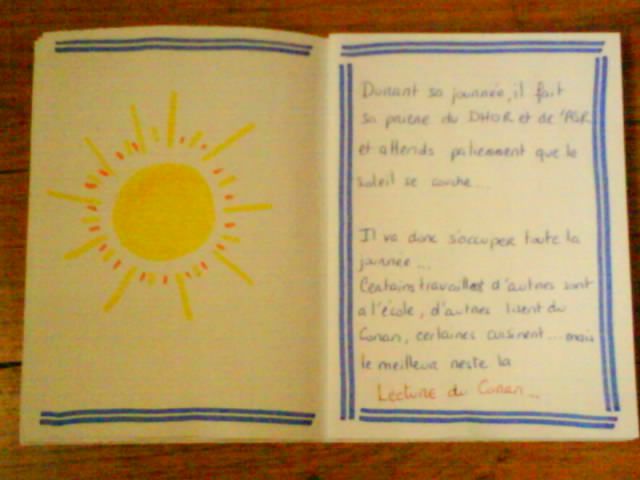 Durant sa journée, il fait
sa prière du DHOR et de 'ASR
et attends patiemment que le
soleil se couche...
Il va donc s'occuper toute la
journée...
Certains travaillet d'autres sont
a l'école, d'autres lisent du
Coran, certaines cuisinent... mais
le meilleur reste la
Lecture du Coran...